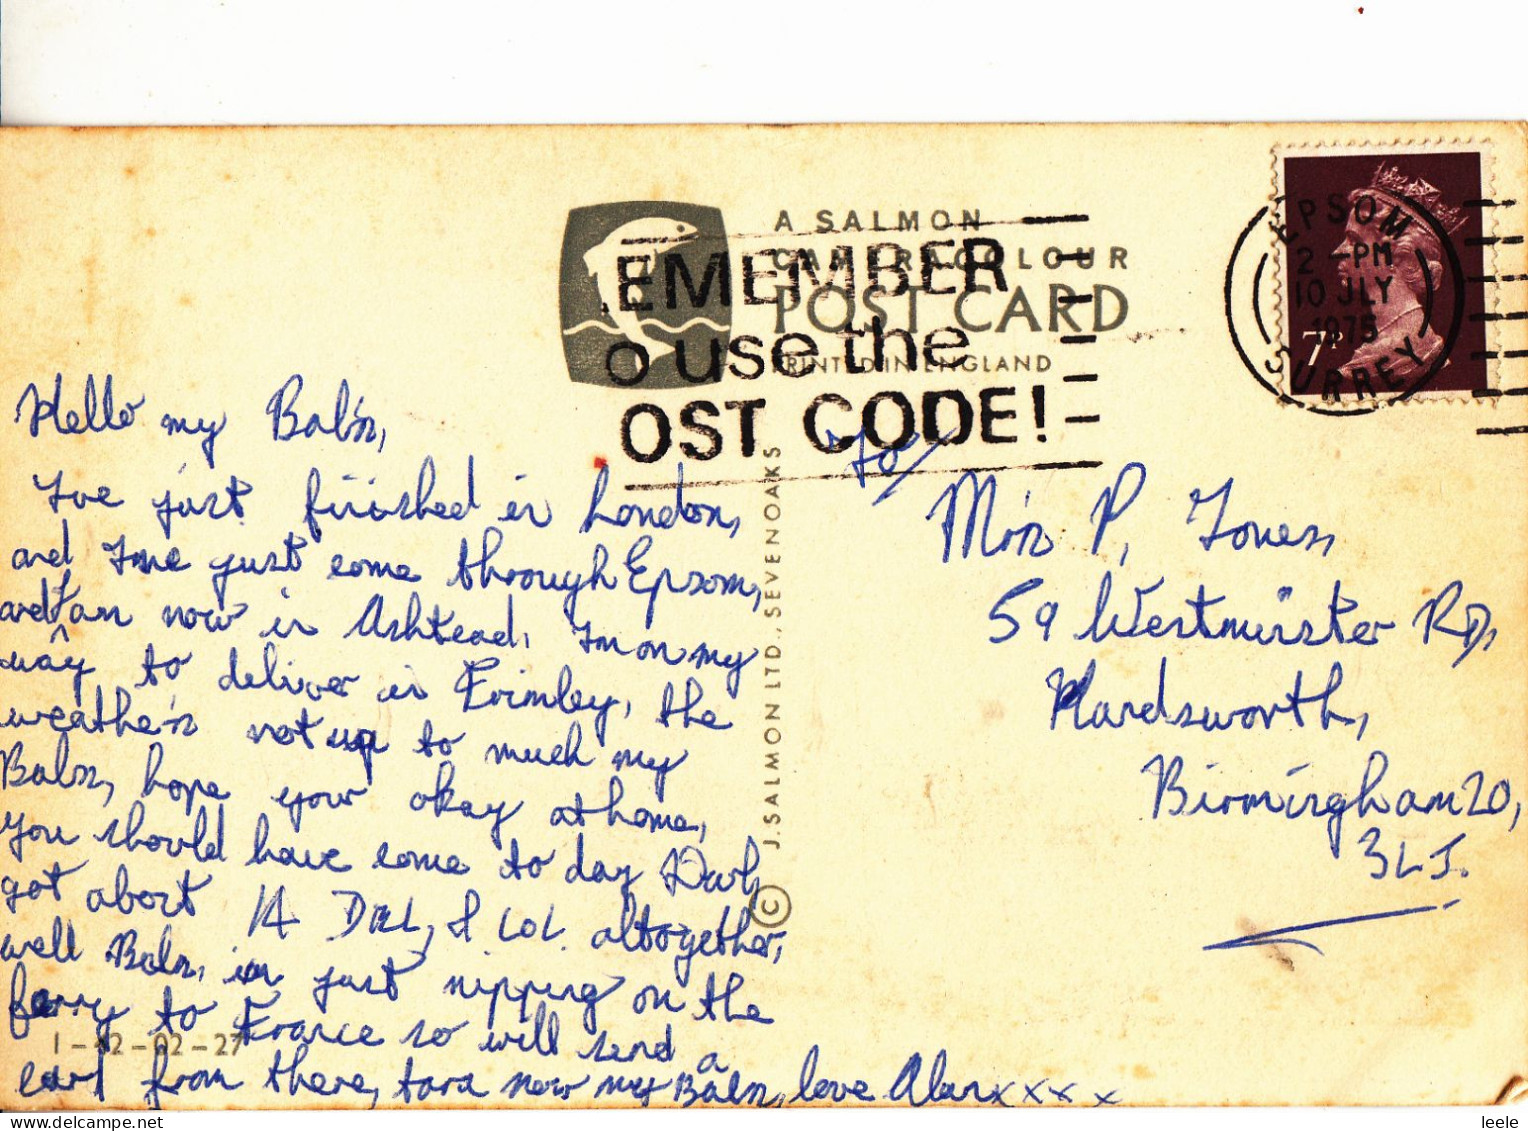 A SALMON
CAMERACOLOUR
POST CARD
PRINTED IN ENGLAND
EMEMBER
O use the
OST CODE!
EPSOM
2 - PM
10 JLY
1975
SURREY
7P
Hello my Bab's,
I've just finished in London,
and I've just come through Epsom,
and I am now in Ashtead, I'm on my
way to deliver in Frimley, the
weather's not up to much my
Babs, hope your okay at home,
You should have come to day Darl,
got about 14 DEL, & COL. altogether,
well Babs, im just nipping on the
ferry to France so will send a
card from there, tara now my Babs, love Alan x x x x
1-42-02-27
J. SALMON LTD., SEVENOAKS ©
To/
Mrs P, Jones,
59 Westminster RD,
Handsworth,
Birmingham 20,
3LJ.
leele